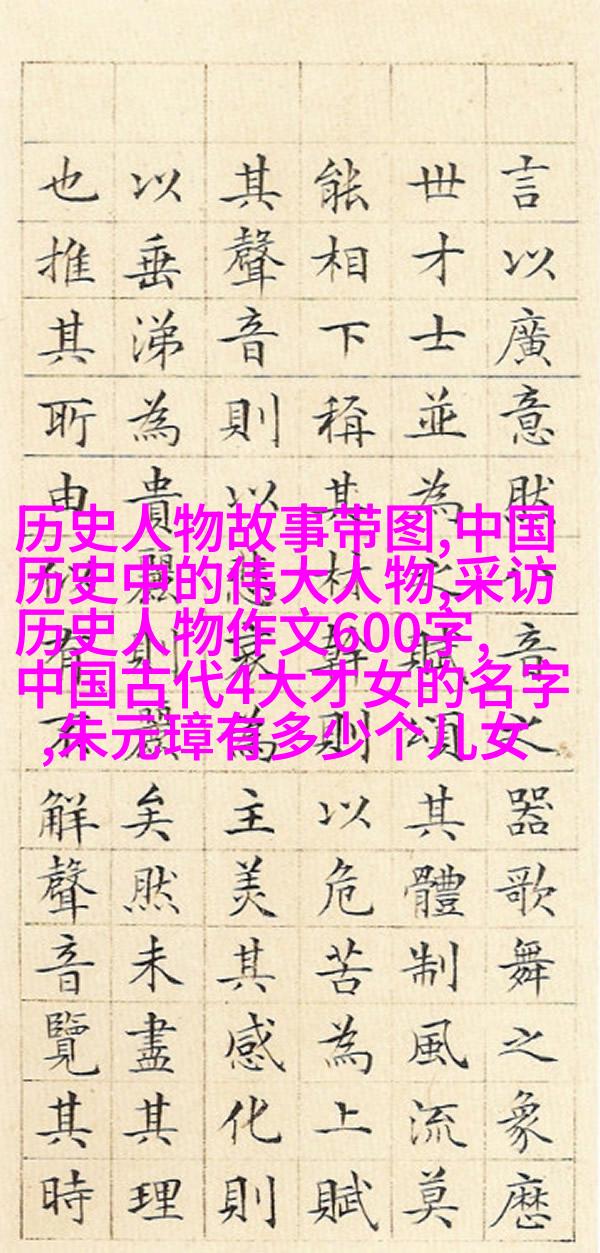 历史人物故事带图,中国
历史中的伟大人物,采访
历史人物作文600字,
中国古代4大才女的名字
,朱元璋有多少个儿女
言以廣意然音之器歌舞之象歷
世才士並為之賦頌其體制風流莫
能相下稱其材幹則以危苦為上賦
其聲音則以悲哀為主美其感化則
以垂涕為貴麗則麗矣然未盡其理
也推其所由似不解聲音覽其時